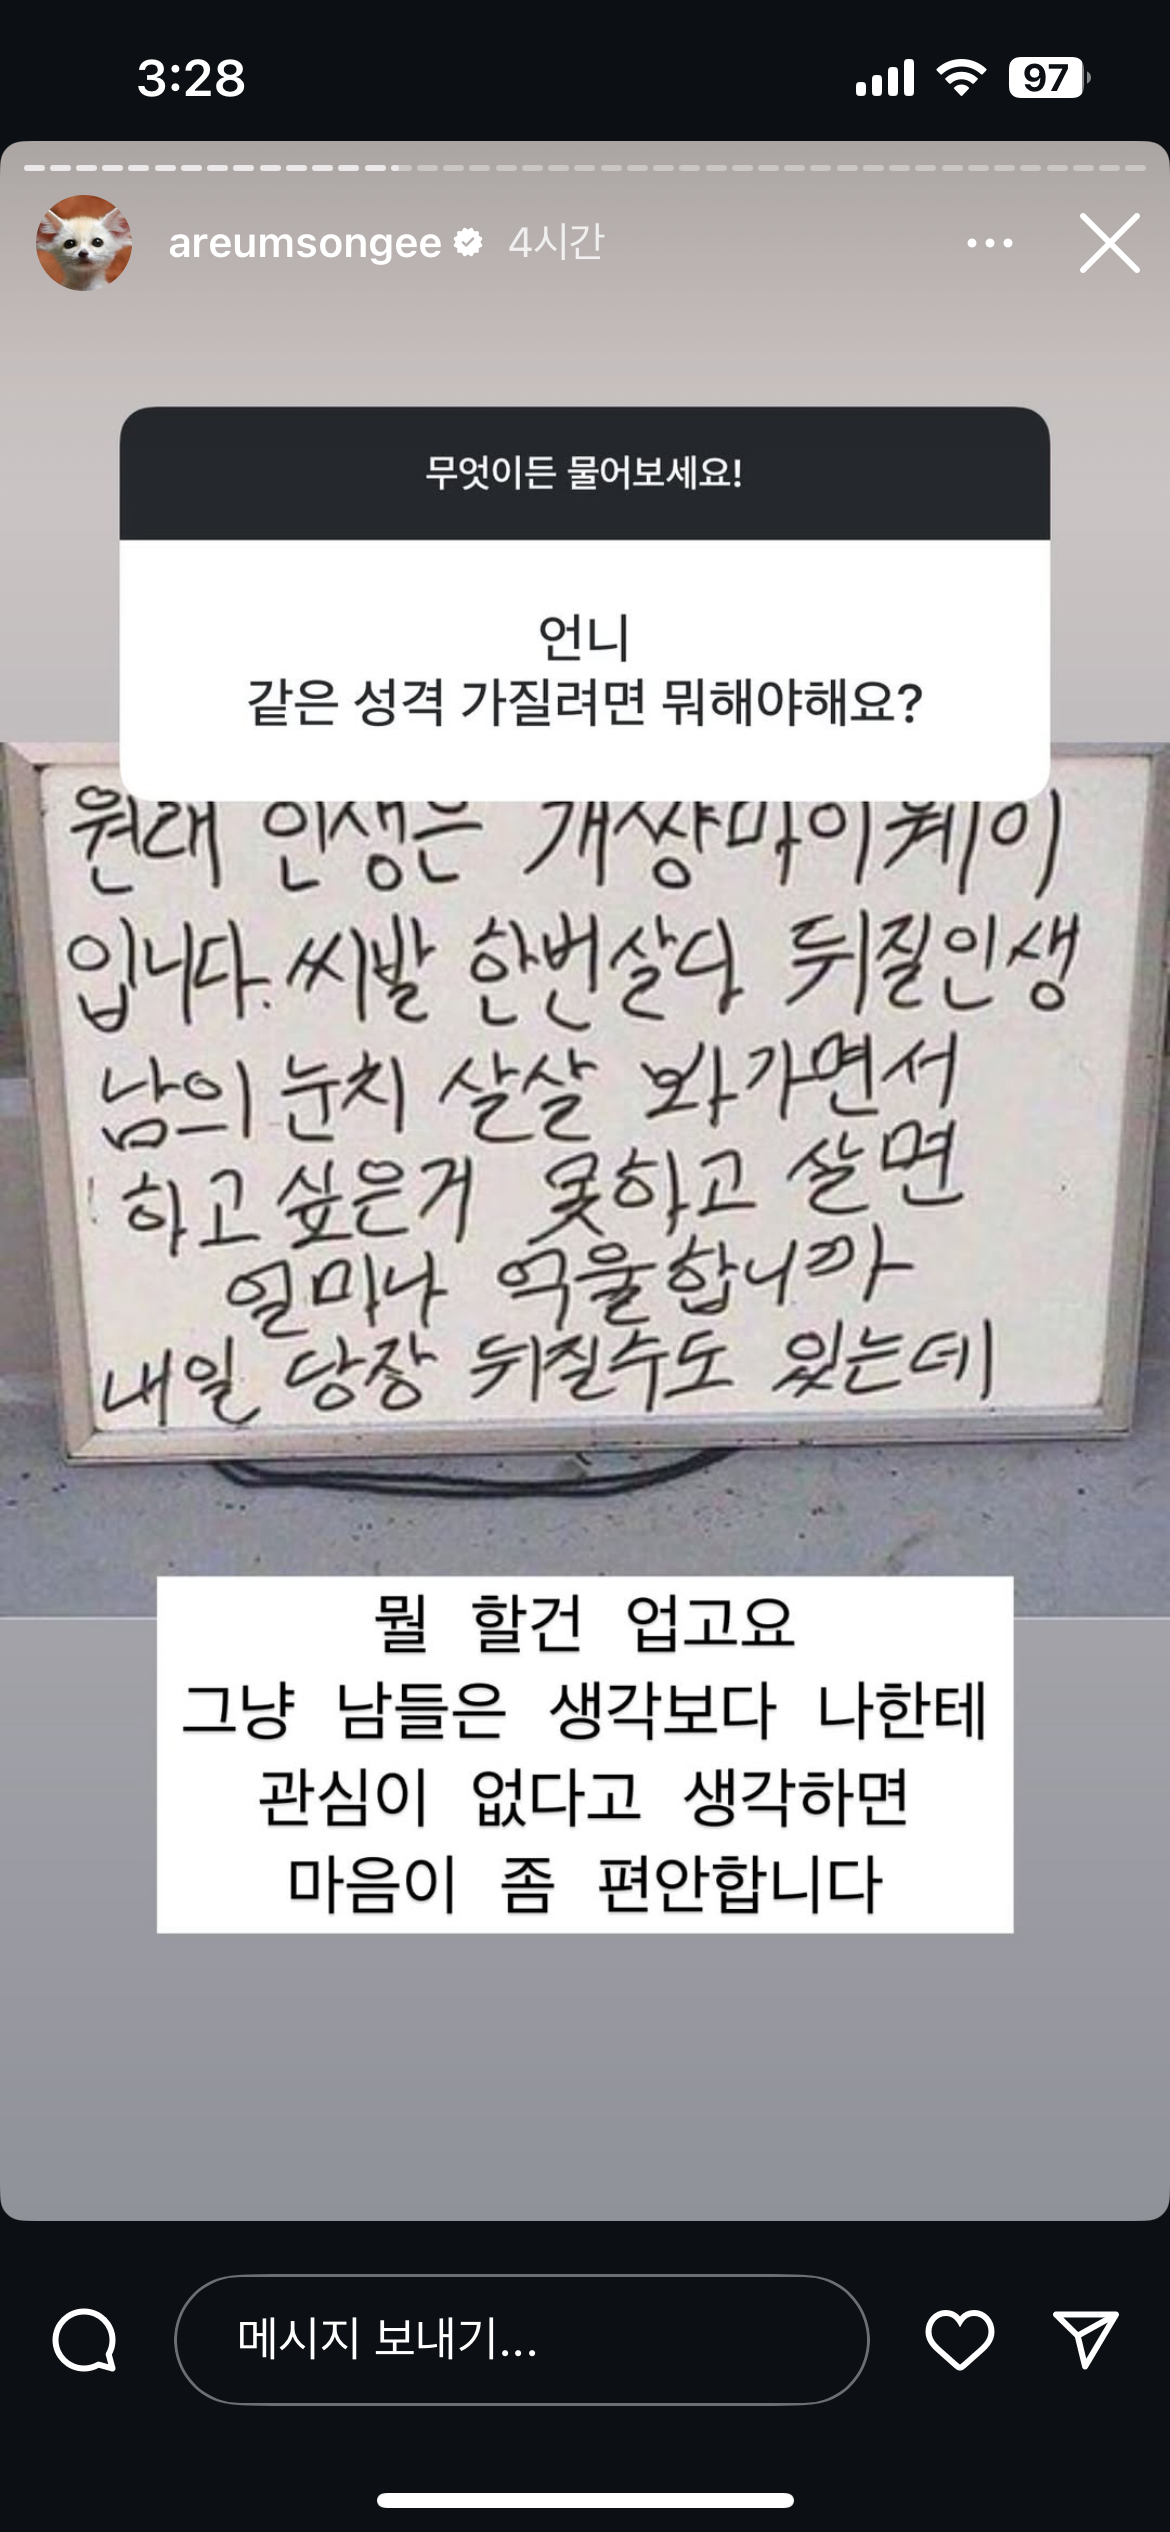 3:28
97
areumsongee 4시간
무엇이든 물어보세요!
언니
같은 성격 가질려면 뭐해야해요?
원래 인생은 개쌍마이웨이
입니다. 씨발 한번살다 뒤질인생
남의 눈치 살살 봐가면서
하고 싶은거 못하고 살면
얼마나 억울합니까
내일 당장 뒤질수도 있는데
뭘 할건 업고요
그냥 남들은 생각보다 나한테
관심이 없다고 생각하면
마음이 좀 편안합니다
메시지 보내기...